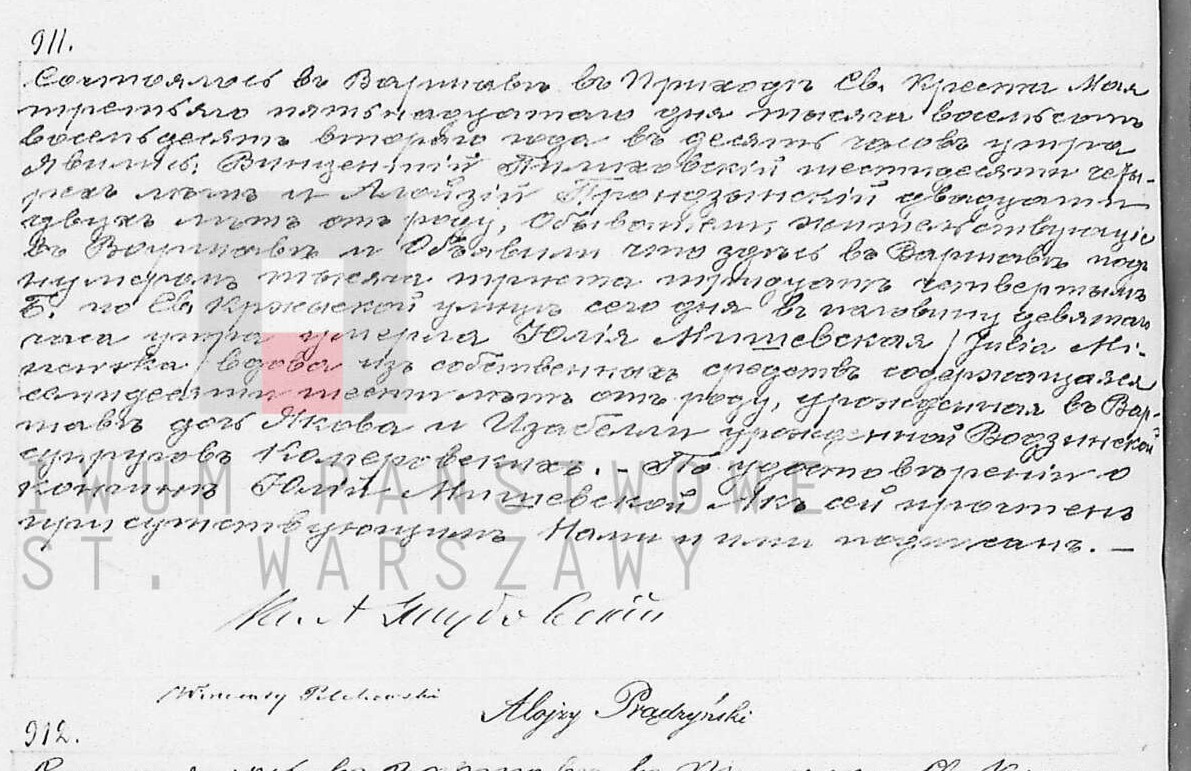 911.
Состоялось въ Варшавѣ въ Приходѣ Св. Креста Мая
третьяго пятьнадцатаго дня тысяча восемьсотъ
восемьдесятъ втораго года въ десять часовъ утра
Явились, Винцентій Пилиховскій шестидесяти четы-
рехъ лѣтъ и Алойзій Прондзынскій двадцати
двухъ лѣтъ отъ роду, Обыватели, жительствующіе
въ Варшавѣ и Объявили что здѣсь въ Варшавѣ подъ
нумеромъ тысяча триста тридцать четвертымъ
Б. по Св. Кржыской улицѣ сего дня въ половину девятаго
часа утра умерла Юлія Мишевская /Julia Mi-
вдова изъ собственныхъ средствъ содержащаяся
семидесяти шести лѣтъ отъ роду, урожденная въ Вар-
шавѣ дочь Якова и Изабелли урожденной Водзинской
супруговъ . – По удостовѣреніи о
кончинѣ Юліи Мишевской Актъ сей прочтенъ
присутствующимъ Нами и ими подписанъ. –
Кс. А
Wincenty Pilichowski
Alojzy Prądzyński
912.
IWUM PAŃSTWOWE
ST. WARSZAWY